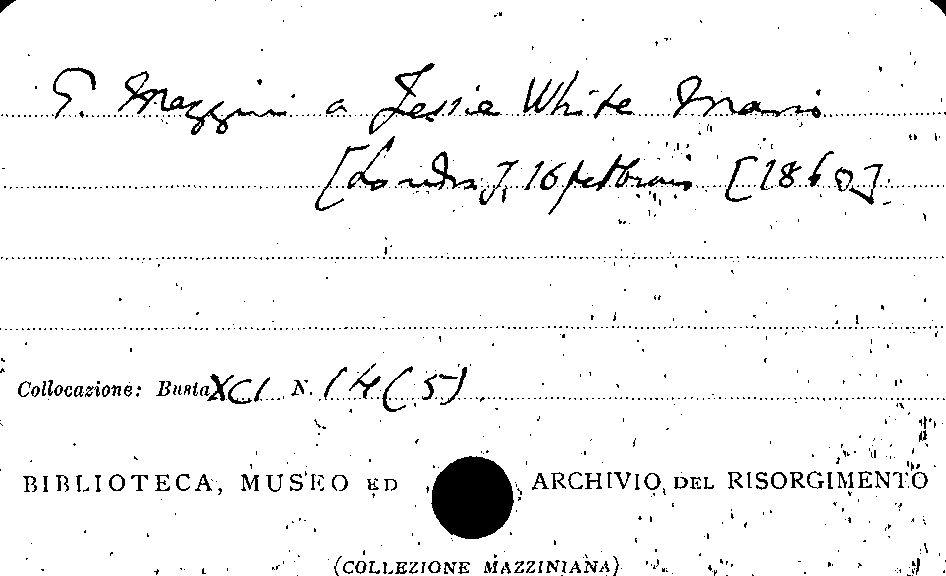 G. Mazzini a Jessie White Mario
[Londra], 16 febbraio [1860]
Collocazione: Busta XCI N. 14(5)
BIBLIOTECA, MUSEO ED ARCHIVIO DEL RISORGIMENTO
(COLLEZIONE MAZZINIANA)